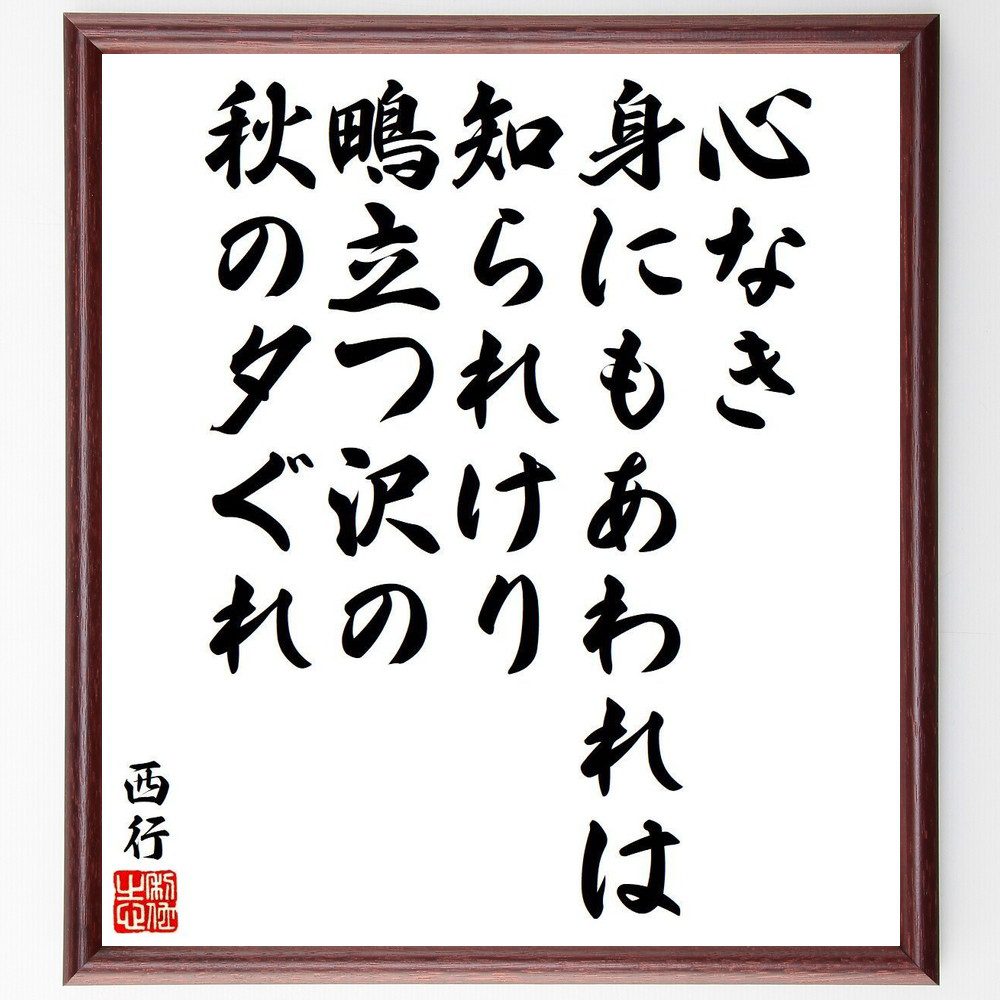 心なき
身にもあわれは
知られけり
鴫立つ沢の
秋の夕ぐれ
西行